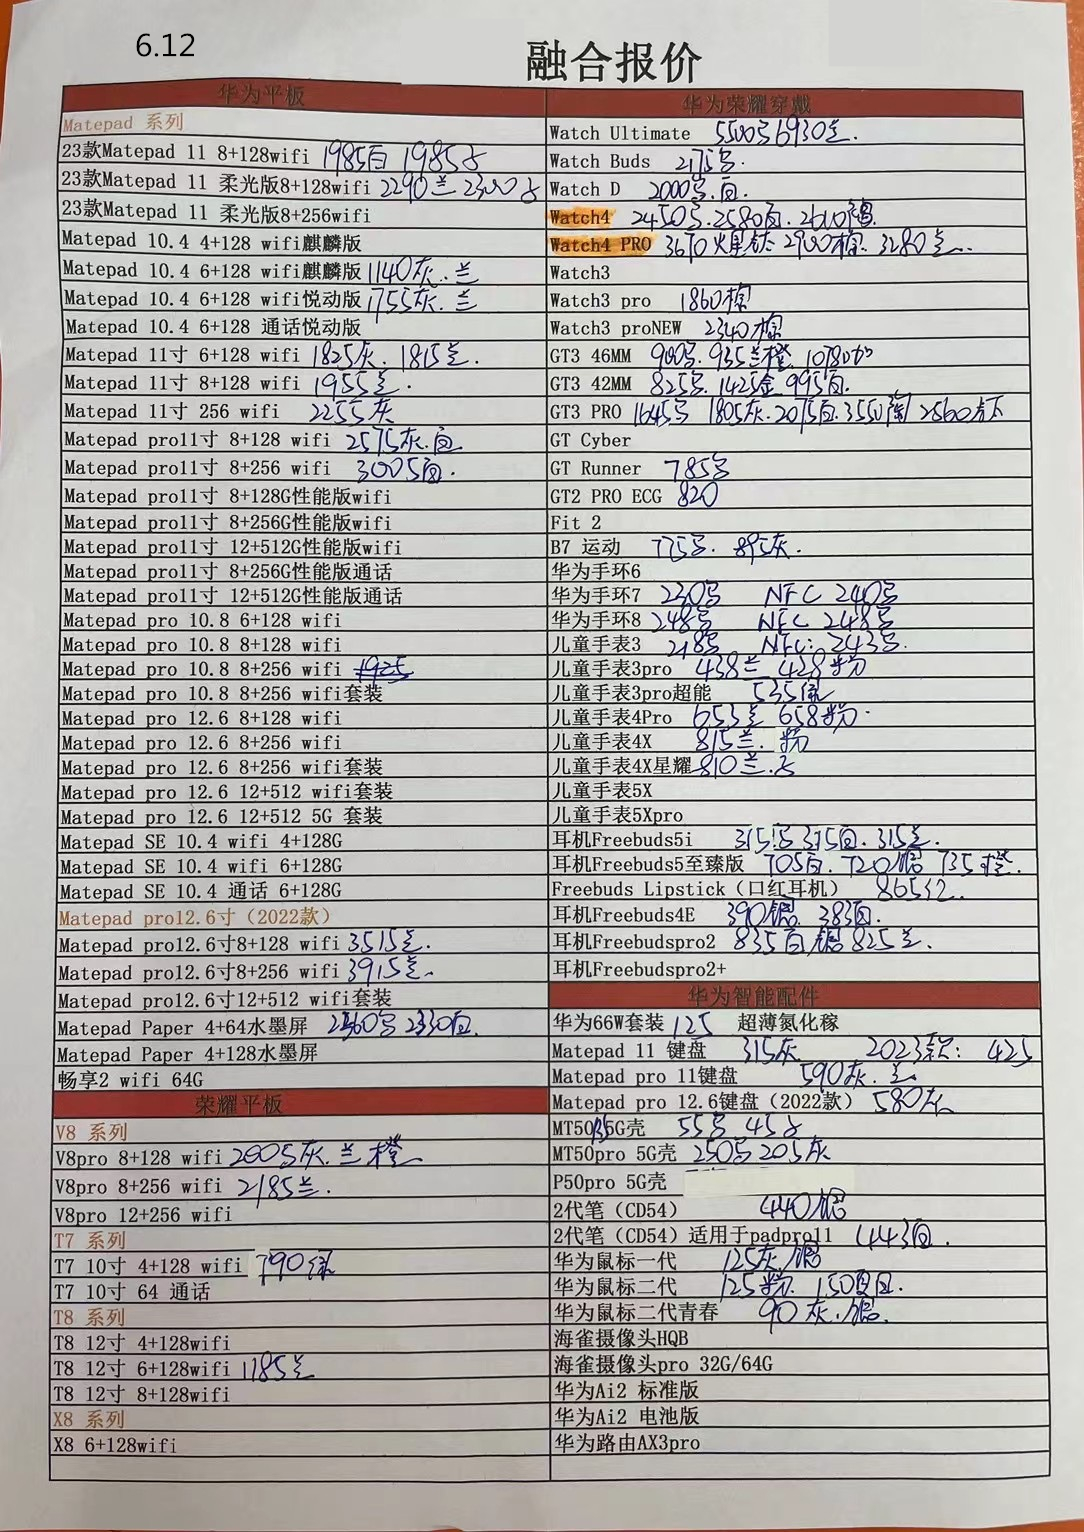 6.12
融合报价
华为平板
Matepad 系列
23款Matepad 11 8+128wifi 1985白 1985
23款Matepad 11 柔光版8+128wifi 2290兰 2300
23款Matepad 11 柔光版8+256wifi
Matepad 10.4 4+128 wifi麒麟版
Matepad 10.4 6+128 wifi麒麟版 1140灰.兰
Matepad 10.4 6+128 wifi悦动版 1755灰.兰
Matepad 10.4 6+128 通话悦动版
Matepad 11寸 6+128 wifi 1825灰. 1815兰.
Matepad 11寸 8+128 wifi 1955兰.
Matepad 11寸 256 wifi 2255灰
Matepad pro11寸 8+128 wifi 2575灰.白
Matepad pro11寸 8+256 wifi 3005白.
Matepad pro11寸 8+128G性能版wifi
Matepad pro11寸 8+256G性能版wifi
Matepad pro11寸 12+512G性能版wifi
Matepad pro11寸 8+256G性能版通话
Matepad pro11寸 12+512G性能版通话
Matepad pro 10.8 6+128 wifi
Matepad pro 10.8 8+128 wifi
Matepad pro 10.8 8+256 wifi
Matepad pro 10.8 8+256 wifi套装
Matepad pro 12.6 8+128 wifi
Matepad pro 12.6 8+256 wifi
Matepad pro 12.6 8+256 wifi套装
Matepad pro 12.6 12+512 wifi套装
Matepad pro 12.6 12+512 5G 套装
Matepad SE 10.4 wifi 4+128G
Matepad SE 10.4 wifi 6+128G
Matepad SE 10.4 通话 6+128G
Matepad pro12.6寸（2022款）
Matepad pro12.6寸8+128 wifi 3515兰.
Matepad pro12.6寸8+256 wifi 3915兰.
Matepad pro12.6寸12+512 wifi套装
Matepad Paper 4+64水墨屏 2330白.
Matepad Paper 4+128水墨屏
畅享2 wifi 64G
荣耀平板
V8 系列
V8pro 8+128 wifi 2005灰.兰 橙
V8pro 8+256 wifi 2185兰.
V8pro 12+256 wifi
T7 系列
T7 10寸 4+128 wifi 790绿
T7 10寸 64 通话
T8 系列
T8 12寸 4+128wifi
T8 12寸 6+128wifi 1185兰
T8 12寸 8+128wifi
X8 系列
X8 6+128wifi
华为荣耀穿戴
Watch Ultimate 5500号 6930兰.
Watch Buds 2175号.
Watch D 2000号.白.
Watch4 2450号.2580白.
Watch4 PRO 3670 火星钛 2900棕. 3280兰.
Watch3
Watch3 pro 1860棕
Watch3 proNEW 2340棕
GT3 46MM 900号. 935兰橙
GT3 42MM 825号. 1425金 995白.
GT3 PRO 1645号 1805灰.2075白.3550陶
GT Cyber
GT Runner 785号
GT2 PRO ECG 820
Fit 2
B7 运动 775号. 895灰.
华为手环6
华为手环7 230号 NFC 240号
华为手环8 248号 NFC 248号
儿童手表3 218号 NFC: 243号.
儿童手表3pro 438兰 428粉
儿童手表3pro超能 535绿
儿童手表4Pro 653兰 658粉.
儿童手表4X 815兰. 粉
儿童手表4X星耀 810兰.
儿童手表5X
儿童手表5Xpro
耳机Freebuds5i 315号 315白. 315兰.
耳机Freebuds5至臻版 705白. 720银 735橙.
Freebuds Lipstick（口红耳机） 865红.
耳机Freebuds4E 390银. 383白.
耳机Freebudspro2 835白/银 825兰.
耳机Freebudspro2+
华为智能配件
华为66W套装 125 超薄氮化稼
Matepad 11 键盘 315灰 2023款: 425
Matepad pro 11键盘 590灰.兰
Matepad pro 12.6键盘（2022款） 580灰
MT50 5G壳 55号 45
MT50pro 5G壳 250号 205灰
P50pro 5G壳
2代笔（CD54） 440/银
2代笔（CD54）适用于padpro11 443白.
华为鼠标一代 125灰/银
华为鼠标二代 125粉
华为鼠标二代青春 90灰./银.
海雀摄像头HQB
海雀摄像头pro 32G/64G
华为Ai2 标准版
华为Ai2 电池版
华为路由AX3pro